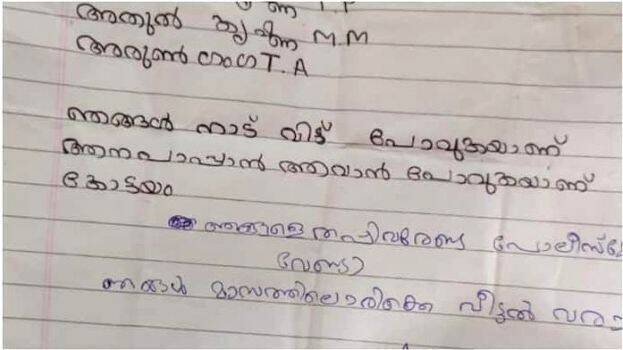 അതുൽ കൃഷ്ണ M.M
അരുൺ ഗംഗ T.A
ഞങ്ങൾ നാട് വിട്ട് പോവുകയാണ്
ആന പാപ്പാൻ ആവാൻ പോവുകയാണ്
കോട്ടയം
ഞങ്ങളെ തപ്പിവരേണ്ട പോലീസ്
വേണ്ടാ
ഞങ്ങൾ മാസത്തിലൊരിക്കെ വീട്ടിൽ വരാ